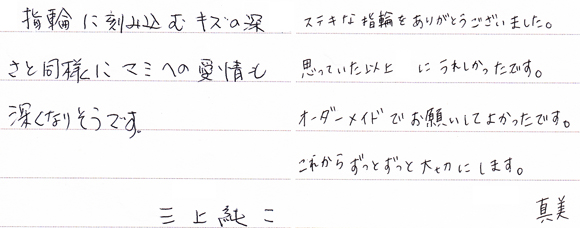 指輪に刻み込むキズの深
さと同様にマミへの愛情も
深くなりそうです。
三上純二
ステキな指輪をありがとうございました。
思っていた以上にうれしかったです。
オーダーメイドでお願いしてよかったです。
これからずっとずっと大切にします。
真美